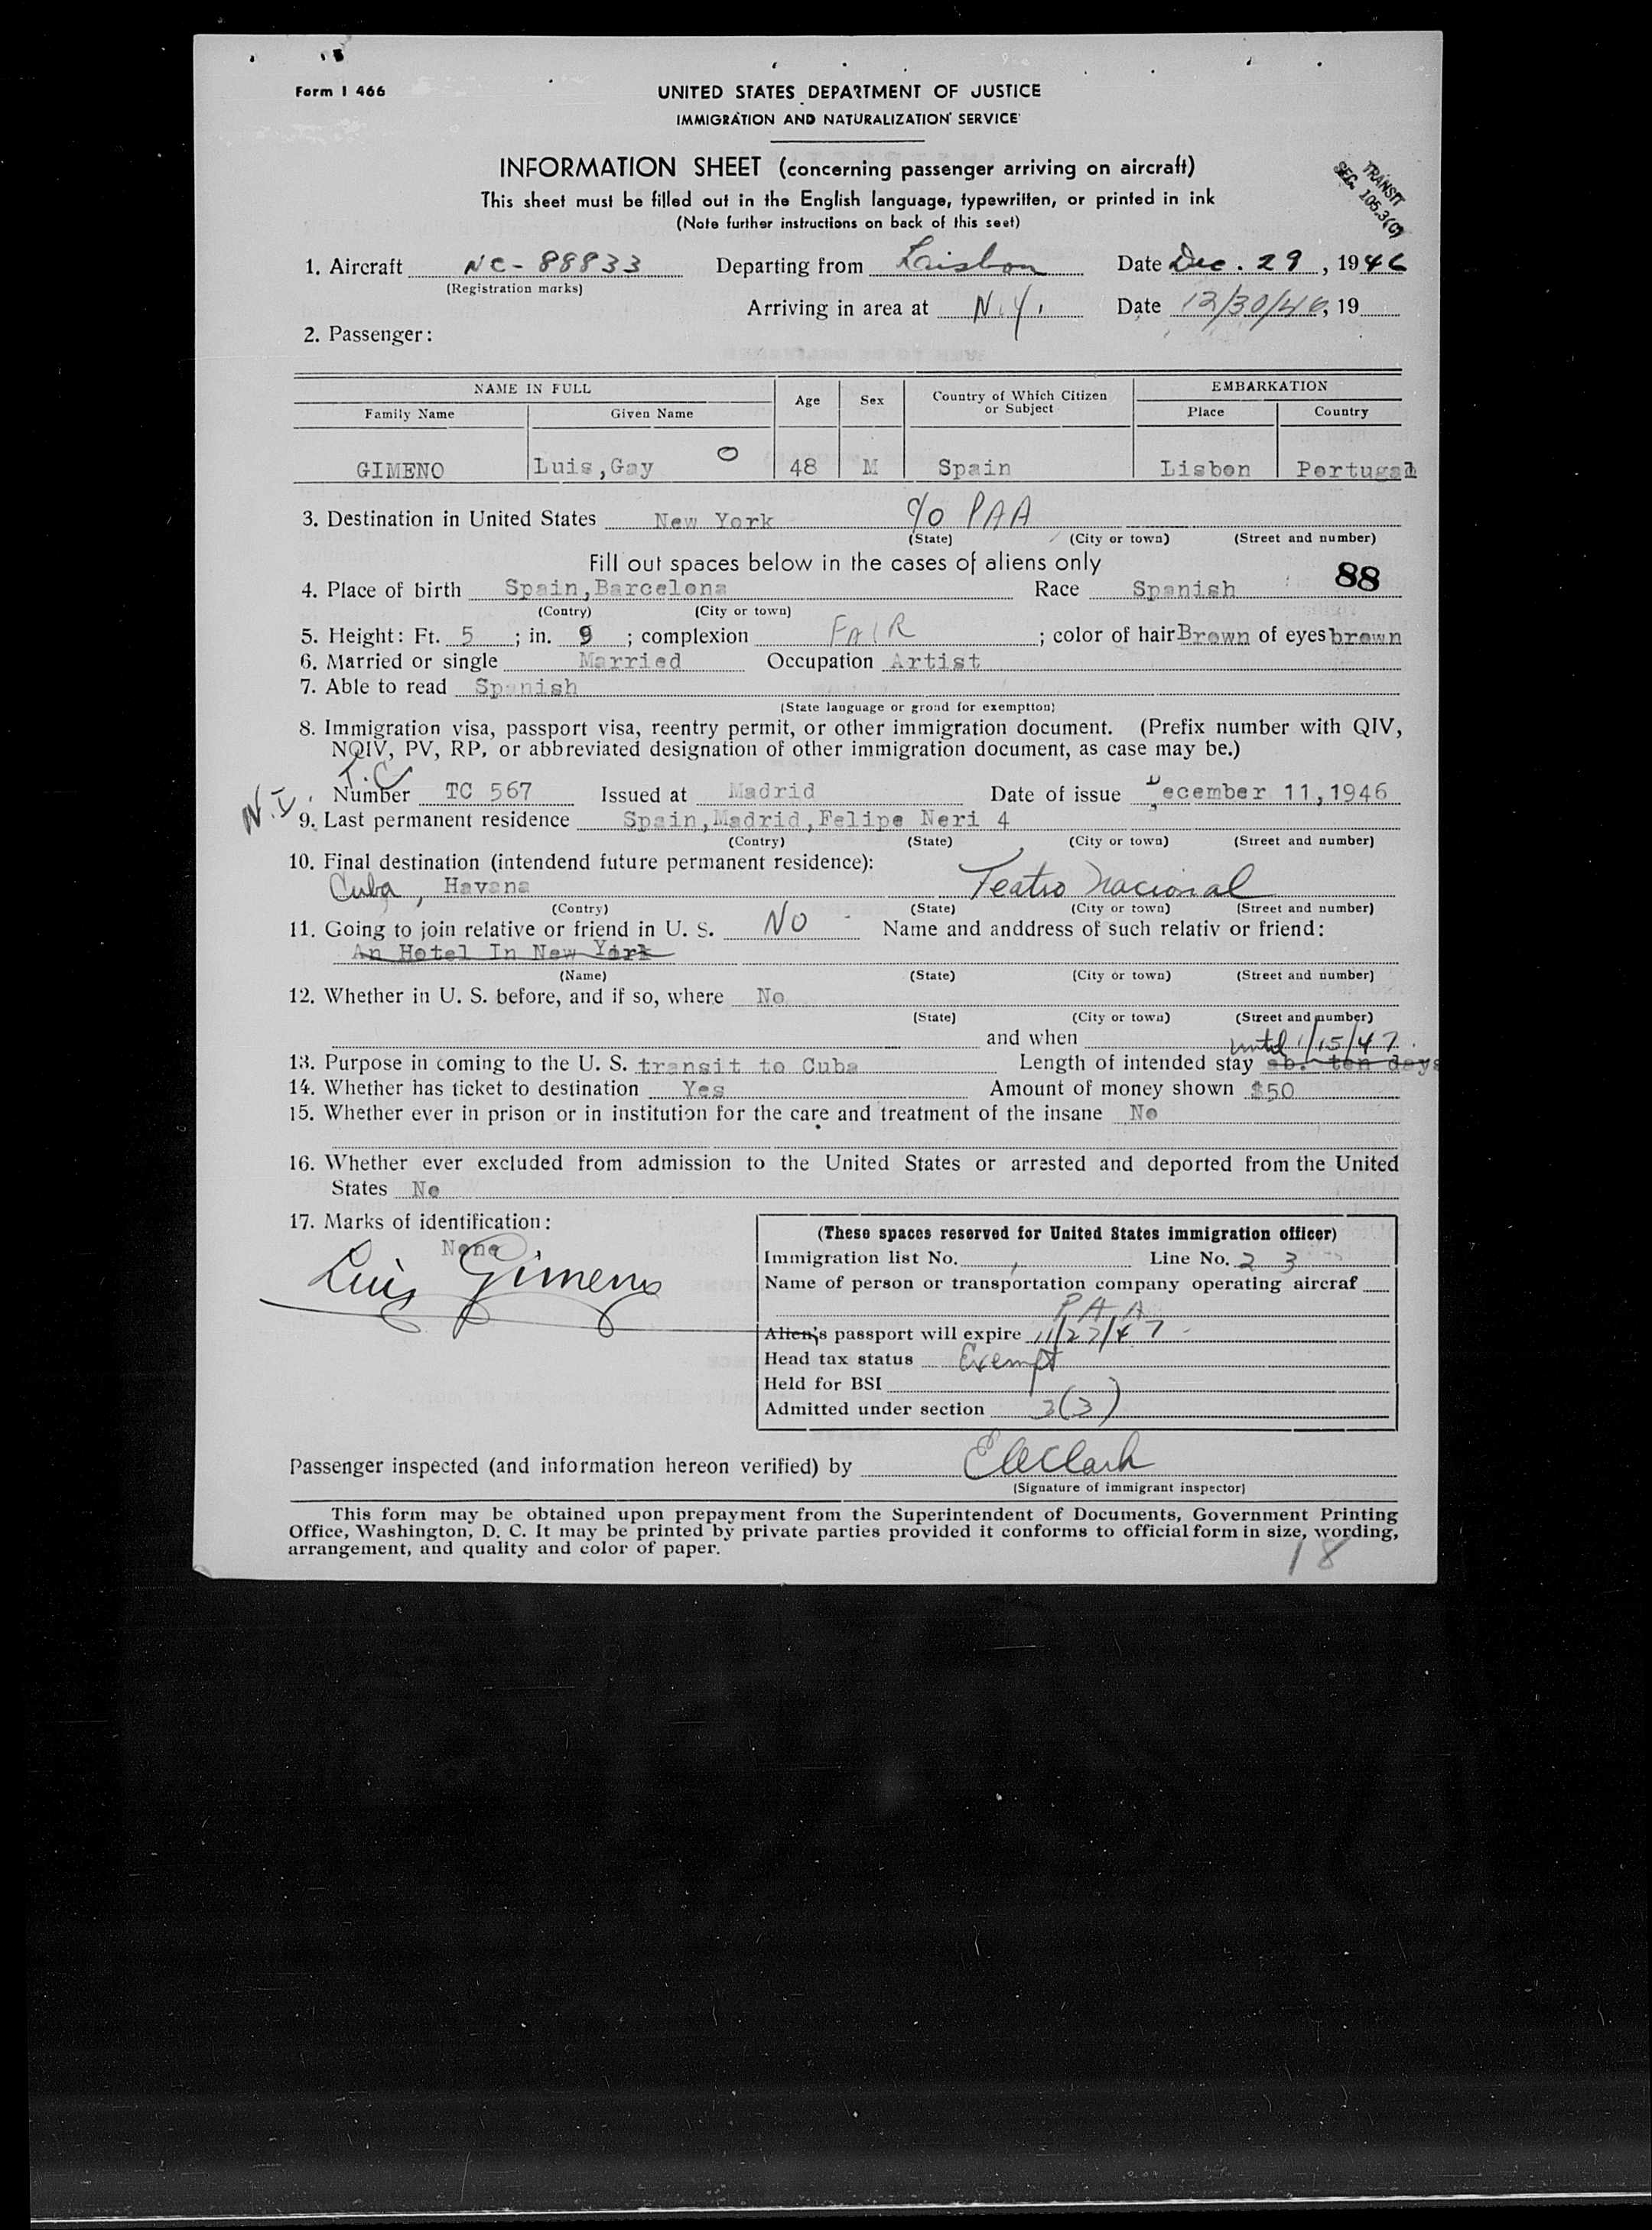 Form I 466
UNITED STATES DEPARTMENT OF JUSTICE
IMMIGRATION AND NATURALIZATION SERVICE
INFORMATION SHEET (concerning passenger arriving on aircraft)
This sheet must be filled out in the English language, typewritten, or printed in ink
(Note further instructions on back of this seet)
TRANSIT
SEC. 105.3(C)
1. Aircraft NC-88833 Departing from Laisbon Date Dec. 29, 1946
(Registration marks)
Arriving in area at N.Y. Date 12/30/46, 19
2. Passenger:
NAME IN FULL Age Sex Country of Which Citizen or Subject EMBARKATION
Family Name Given Name Place Country
GIMENO Luis,Gay O 48 M Spain Lisbon Portugal
3. Destination in United States New York c/o PAA
(State) (City or town) (Street and number)
Fill out spaces below in the cases of aliens only
88
4. Place of birth Spain,Barcelona Race Spanish
(Contry) (City or town)
5. Height: Ft. 5 ; in. 9 ; complexion FAIR ; color of hair Brown of eyes brown
6. Married or single Married Occupation Artist
7. Able to read Spanish
(State language or grond for exemption)
8. Immigration visa, passport visa, reentry permit, or other immigration document. (Prefix number with QIV,
NQIV, PV, RP, or abbreviated designation of other immigration document, as case may be.)
T.C
N.I. Number TC 567 Issued at Madrid Date of issue December 11,1946
9. Last permanent residence Spain,Madrid,Felipe Neri 4
(Contry) (State) (City or town) (Street and number)
10. Final destination (intendend future permanent residence):
Cuba, Havana Teatro Nacional
(Contry) (State) (City or town) (Street and number)
11. Going to join relative or friend in U. S. NO Name and anddress of such relativ or friend:
An Hotel In New York
(Name) (State) (City or town) (Street and number)
12. Whether in U. S. before, and if so, where No
(State) (City or town) (Street and number)
and when until 1/15/47.
13. Purpose in coming to the U. S. transit to Cuba Length of intended stay ab. ten days
14. Whether has ticket to destination Yes Amount of money shown $50
15. Whether ever in prison or in institution for the care and treatment of the insane No
16. Whether ever excluded from admission to the United States or arrested and deported from the United
States No
17. Marks of identification:
None
Luis Gimeno
(These spaces reserved for United States immigration officer)
Immigration list No. Line No. 2 3
Name of person or transportation company operating aircraf
PAA
Alien's passport will expire 11/27/47
Head tax status Exempt
Held for BSI
Admitted under section 3(3)
Passenger inspected (and information hereon verified) by EWClark
(Signature of immigrant inspector)
This form may be obtained upon prepayment from the Superintendent of Documents, Government Printing
Office, Washington, D. C. It may be printed by private parties provided it conforms to official form in size, wording,
arrangement, and quality and color of paper.
18